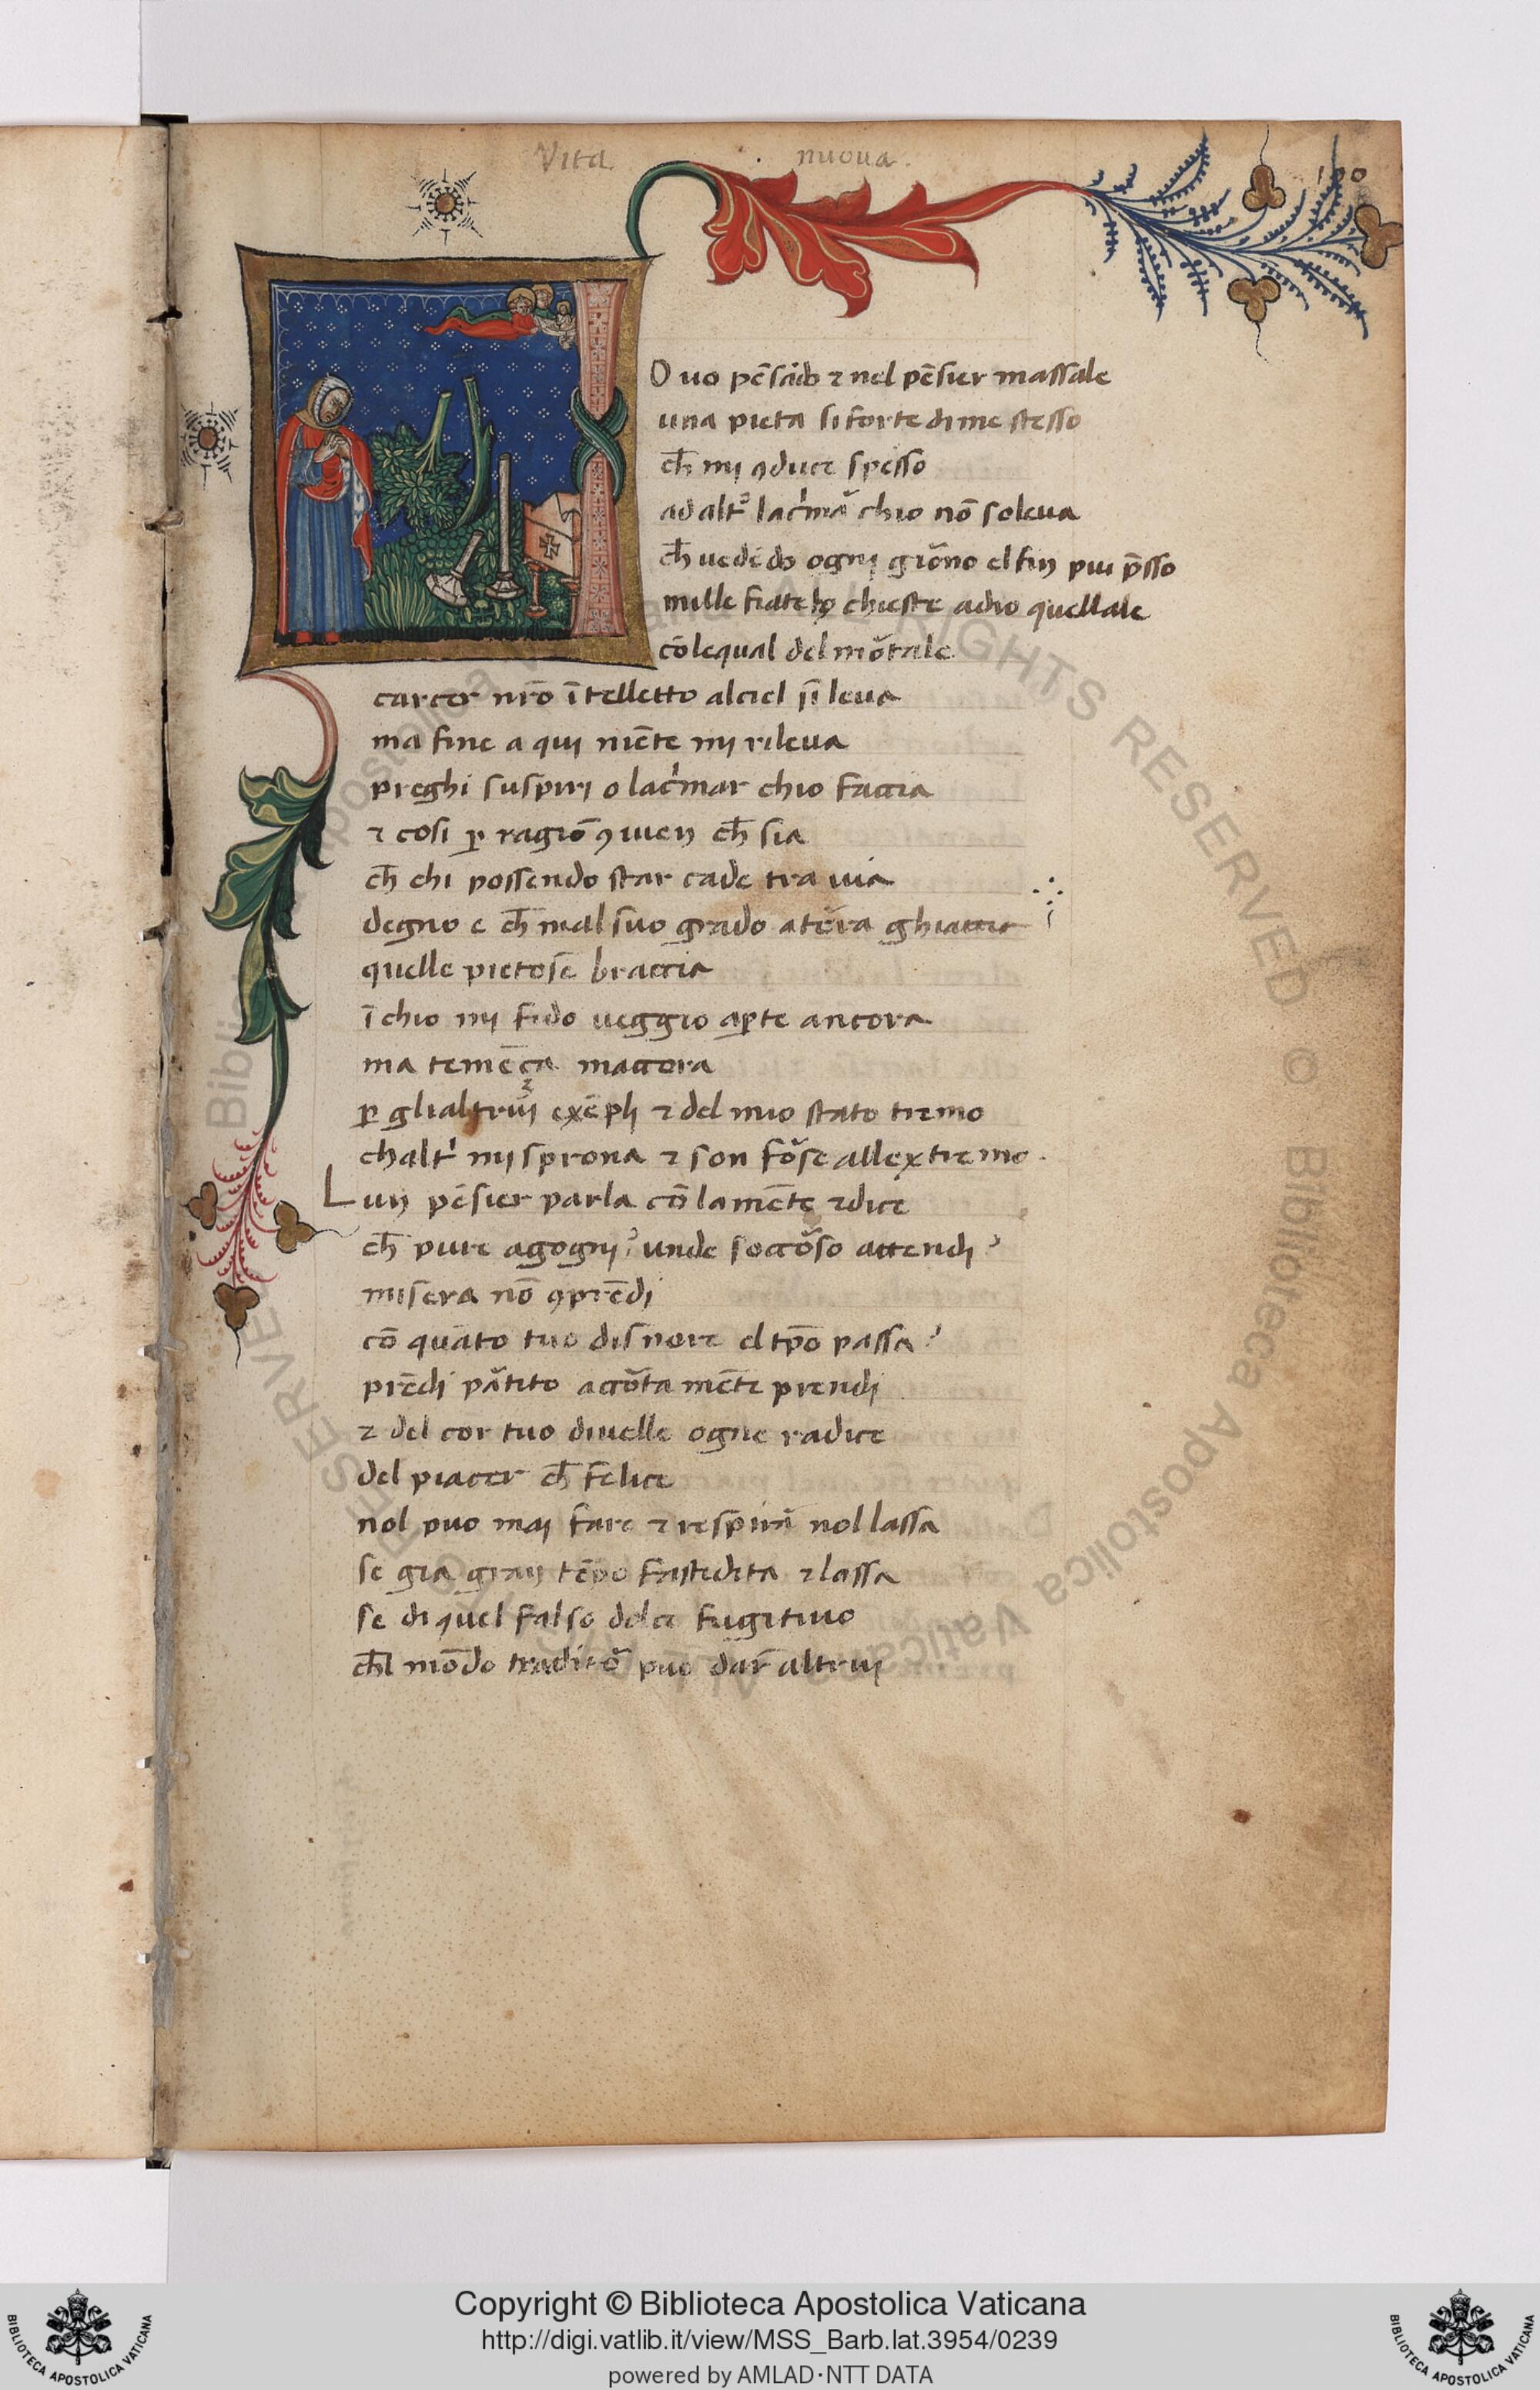 Vita nuova.
100
O uo pēsādo ⁊ nel pēsier massale
una pieta si forte di me stesso
ch̄ mi ꝯduce spesso
ad altͦ lacͥmaͬ chio nō soleua
ch̄ uedēdo ogni gioͬno el fin piu p̄sso
mille fiate ho chieste adio quellale
cō lequal del moͬtale
carcer nr̄o ītelletto alciel si leua
ma fine a qui niēte mi rileua
preghi suspiri o lacͥmar chio faccia
⁊ cosi ꝑ ragiō ꝯuien ch̄ sia
ch̄ chi possendo star cade tra uia
degno e ch̄ mal suo grado a teͬra ghiaccia
quelle pietose braccia
ī chio mi fido ueggio aꝑte ancora
ma temēça maccora
ꝑ glialtrui exēpli ⁊ del mio stato tremo
chaltͥ mi sprona ⁊ son foͬse allextremo.
Lun pēsier parla cō la mēte ⁊ dice
ch̄ pure agogni? unde soccoͬso attendi?
misera nō ꝯprēdi
cō quāto tuo disnore el tp̄o passa?
prēdi paͬtito accoͬta mēte prendi
⁊ del cor tuo diuelle ogne radice
del piacer ch̄ felice
nol puo mai fare ⁊ respiraͬ nol lassa
se gia gran tēpo fastidita ⁊ lassa
se di quel falso dolce fugitiuo
ch̄l mōdo traditoͬ puo dar altrui
Copyright © Biblioteca Apostolica Vaticana
http://digi.vatlib.it/view/MSS_Barb.lat.3954/0239
powered by AMLAD·NTT DATA
BIBLIOTECA APOSTOLICA VATICANA
BIBLIOTECA APOSTOLICA VATICANA